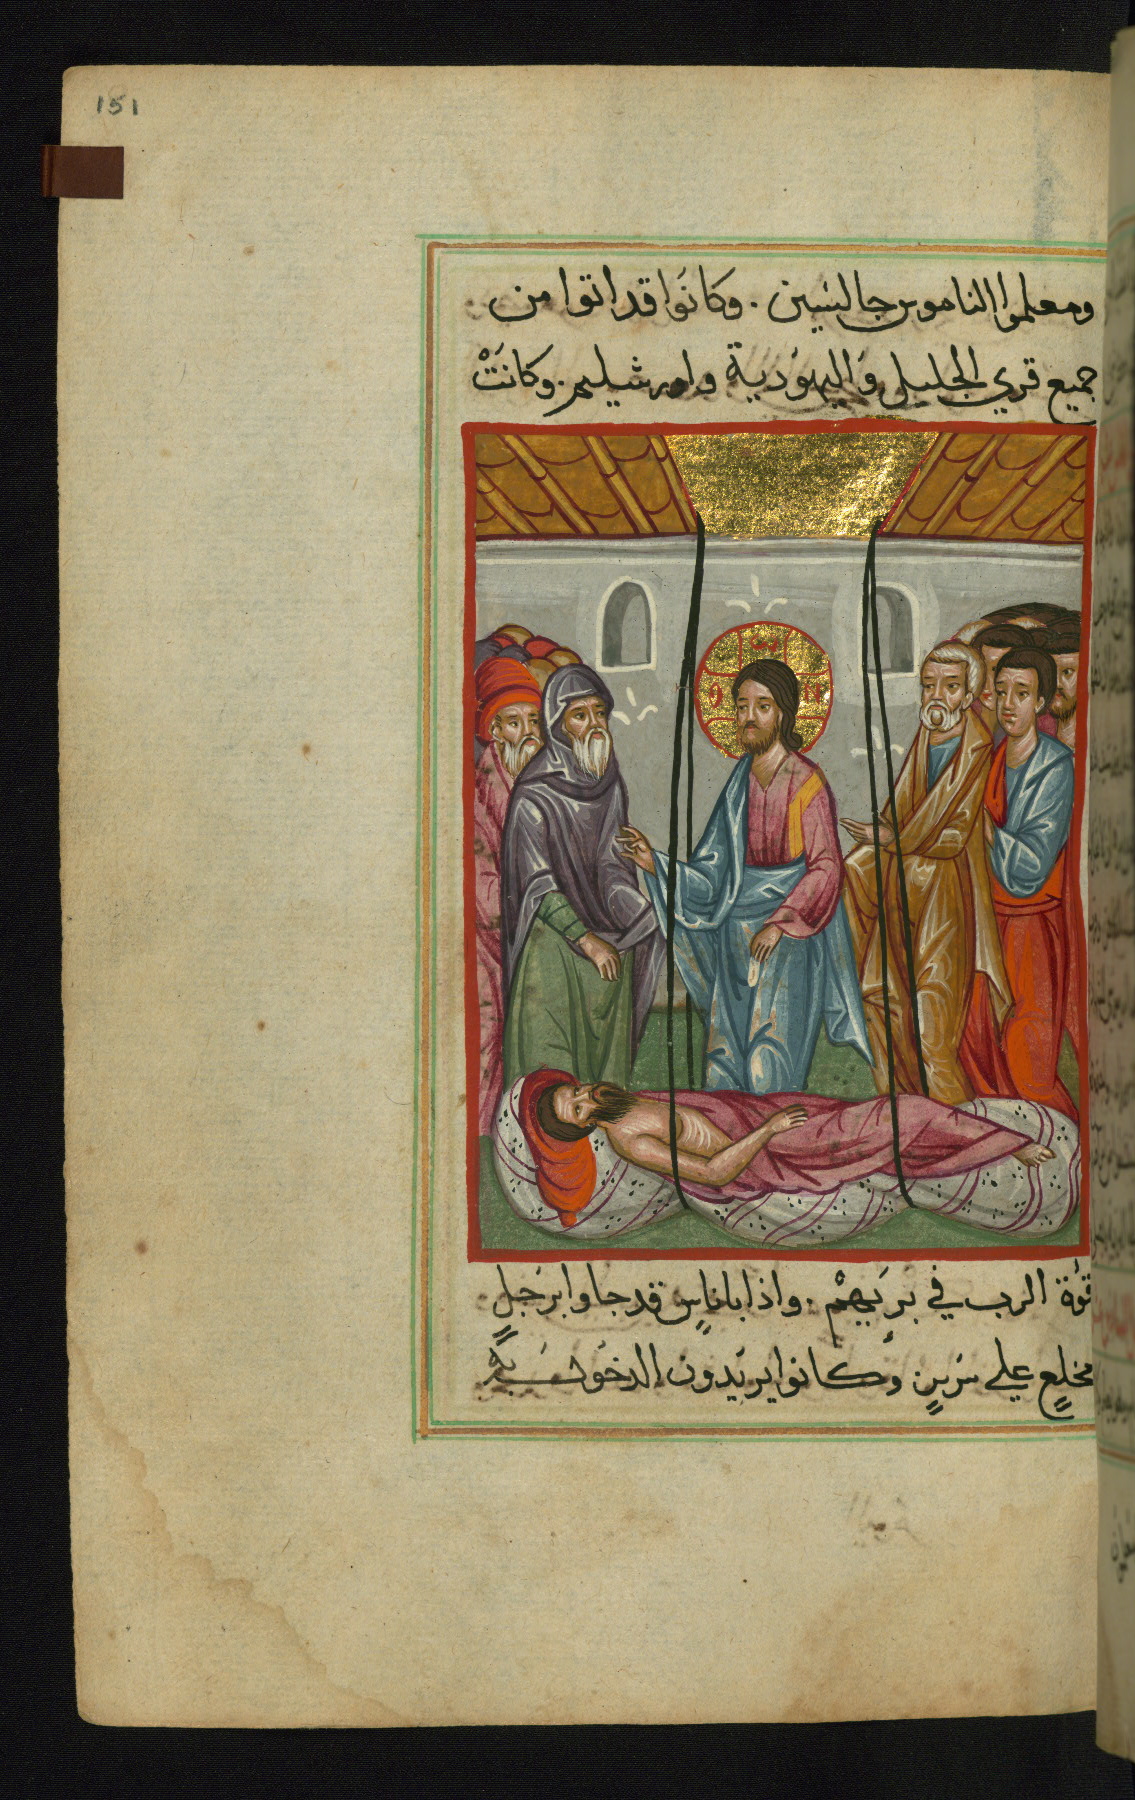 151
ومعلموا الناموس جالسين . وكانوا قد اتوا من
جميع قري الجليل واليهودية واورشليم . وكانَتْ
قوة الرب في بريهمْ . واذا باناسٍ قد جاوا برجلٍ
مخلعٍ علي سريرٍ وكانوا يريدون الدخول به